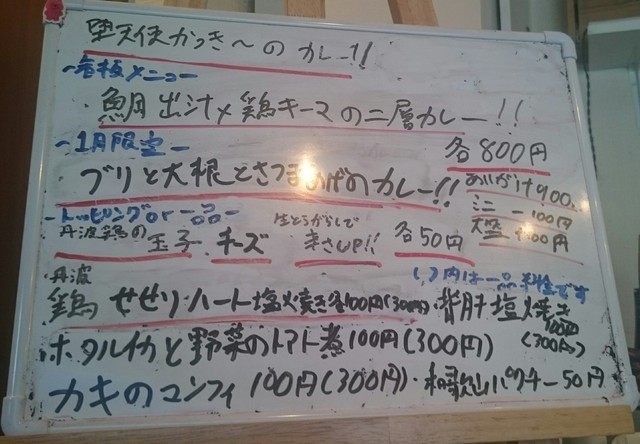 堕天使かっき〜の カレー!!
-看板メニュー
・鯛出汁×鶏キーマの二層カレー!!
-1月限定-
各800円
ブリと大根とさつまあげのカレー!!
あいがけ900.
ミニ -100円
大盛 +100円
-トッピングor一品-
丹波鶏の玉子 チーズ 生とうがらしで辛さUP!! 各50円
( )内は一品料金です
丹波鶏 せせり・ハート塩焼き各100円(300円) 背肝塩焼き100円(300円)
ホタルイカと野菜のトマト煮100円(300円)
カキのコンフィ 100円(300円)・和歌山パクチー50円